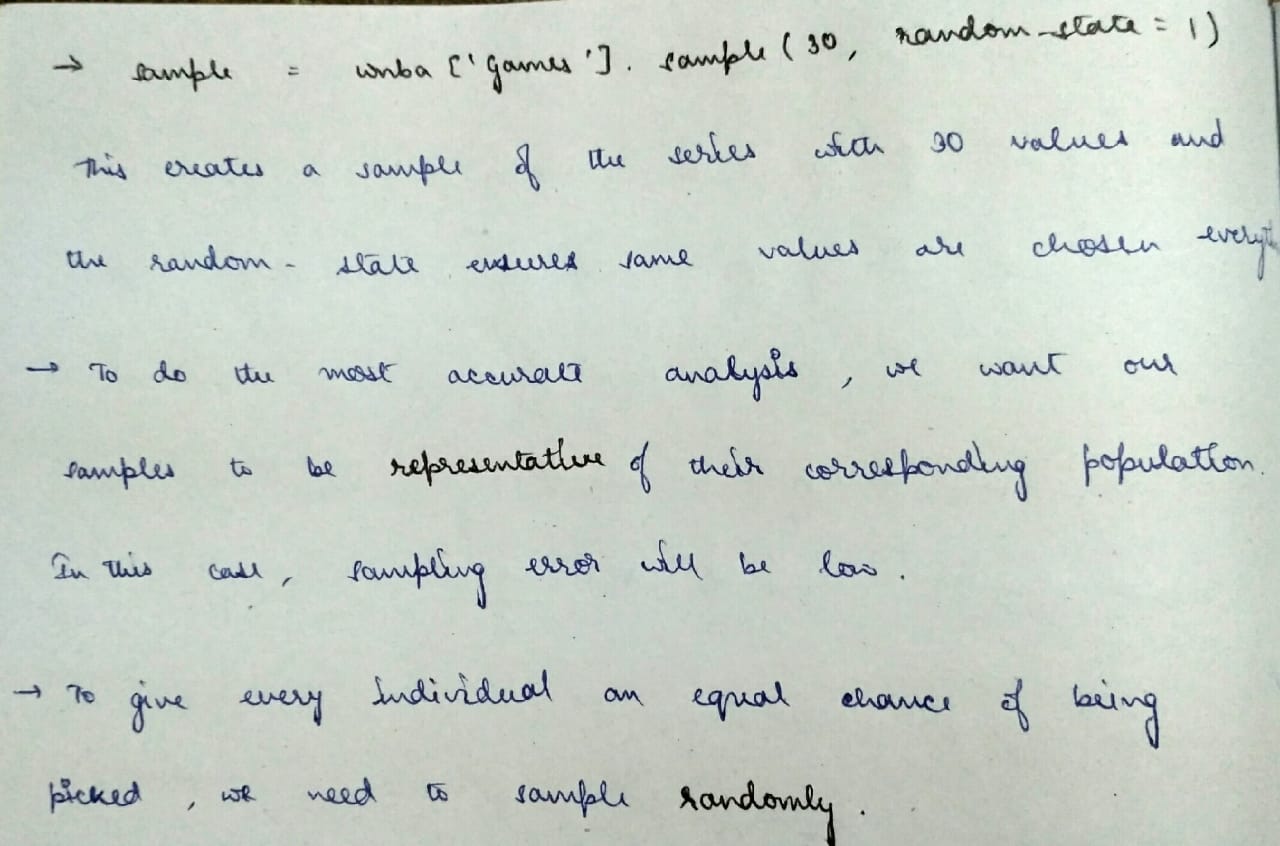 → sample = wnba ['games']. sample (30, random_state = 1)
This creates a sample of the series with 30 values and
the random - state ensures same values are chosen everyt
→ To do the most accurate analysis, we want our
samples to be representative of their corresponding population.
In this case, sampling error will be low.
→ To give every individual an equal chance of being
picked, we need to sample randomly.